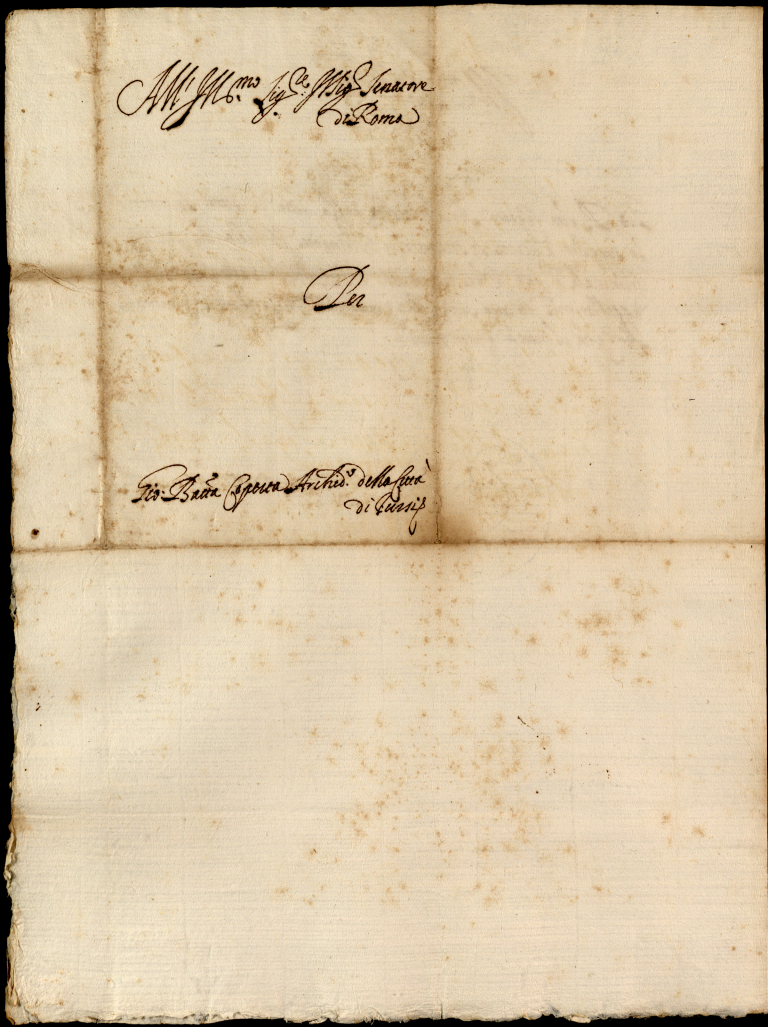 All' Ill.mo Sig.re Il Sig.r Senatore
di Roma
Per
Gio: Batta Copeta Archid.o della Città
di Tursi